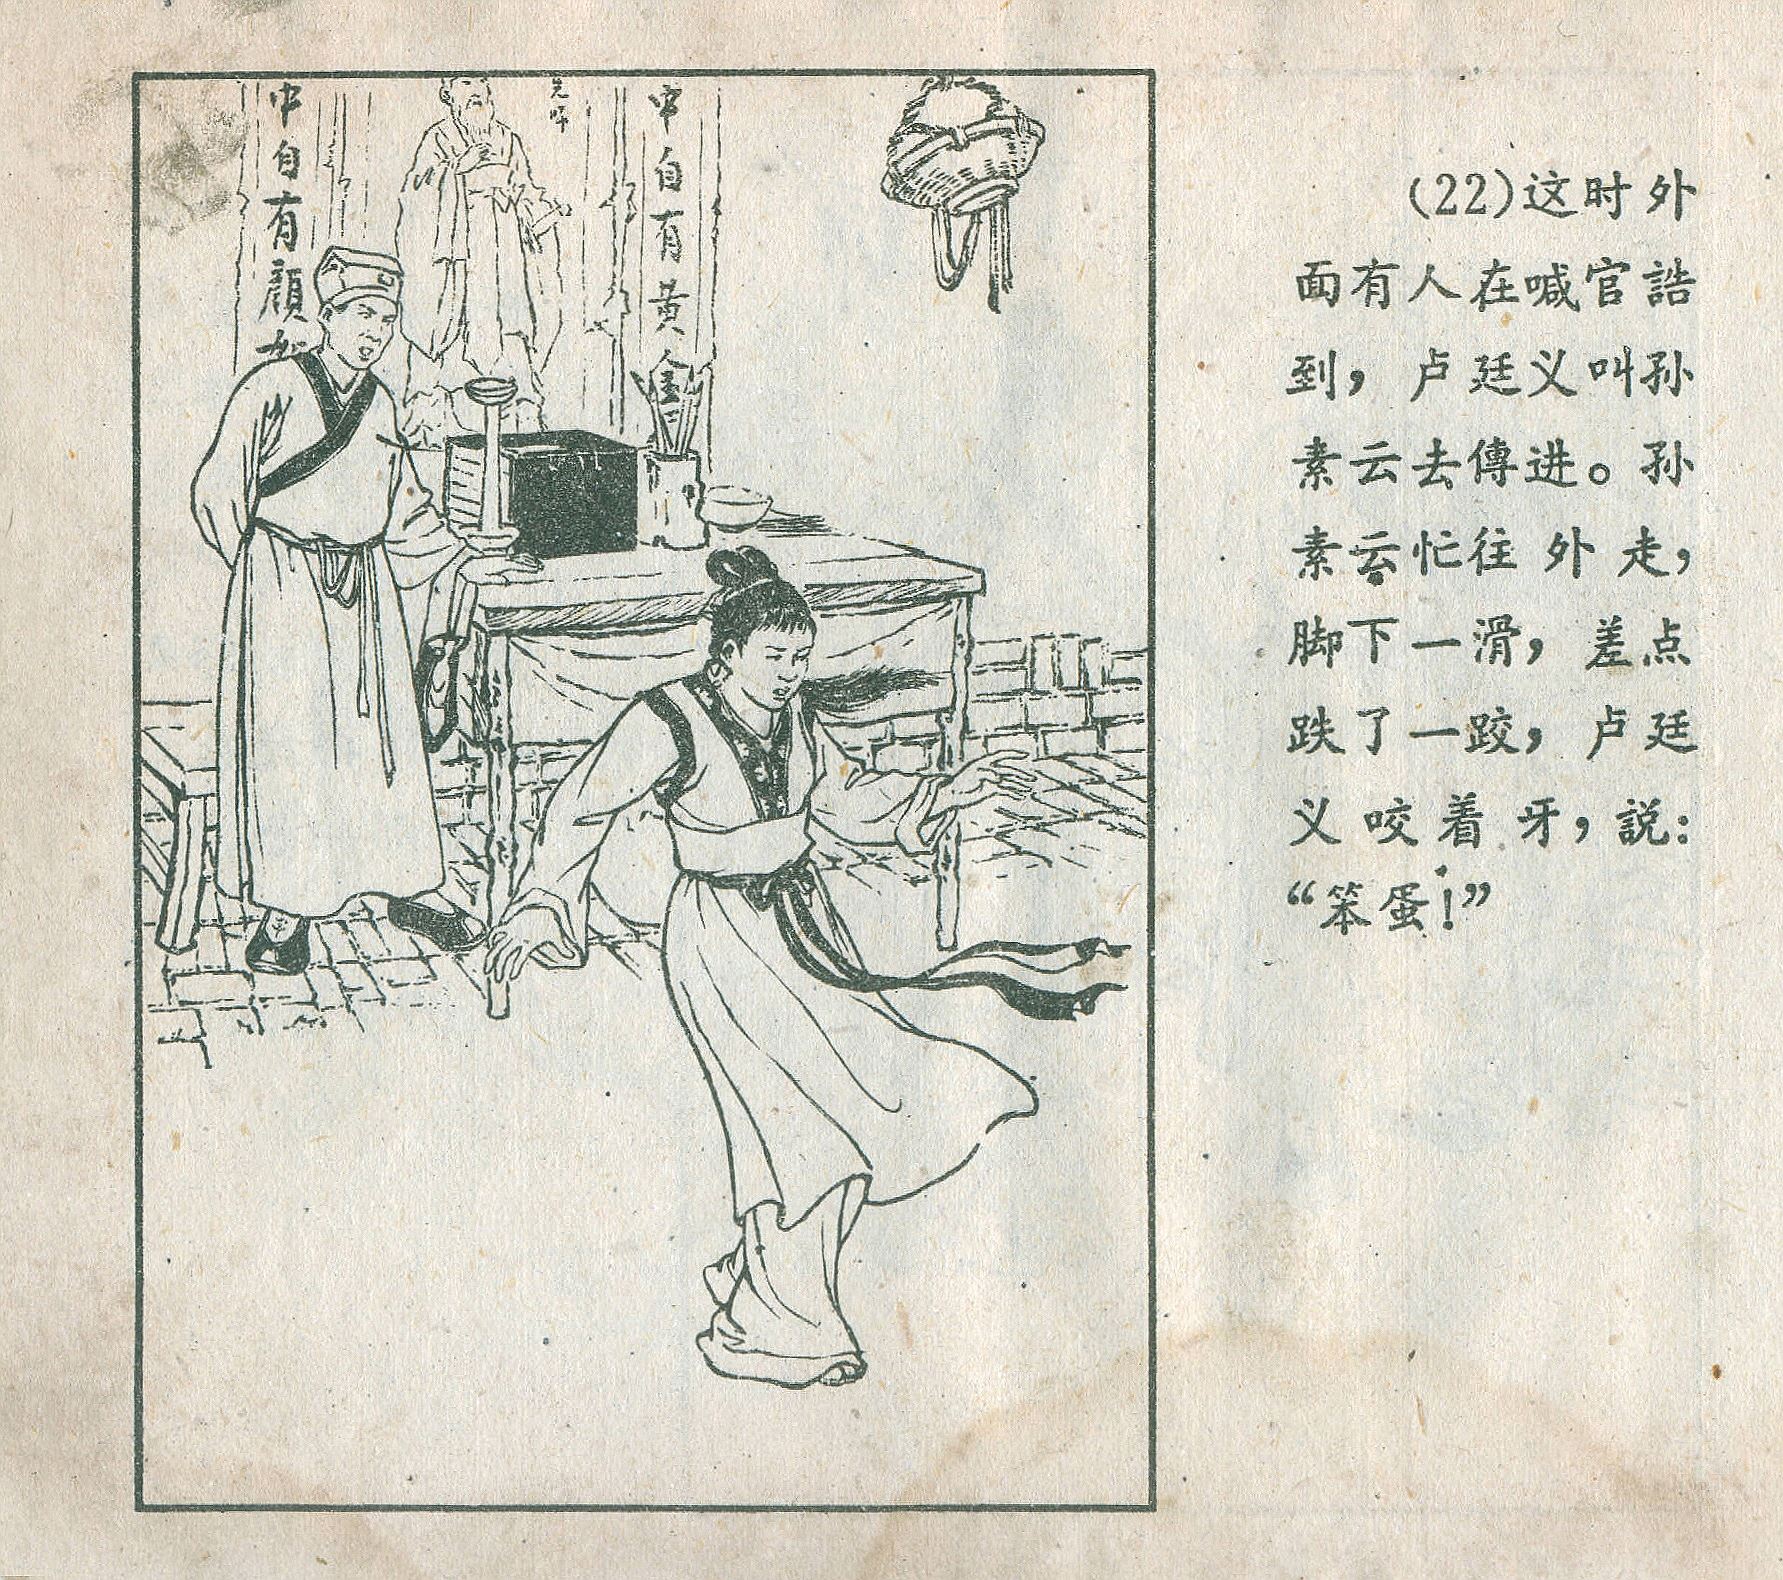 中自有顏如
先師
中自有黄金
(22)这时外
面有人在喊官誥
到，卢廷义叫孙
素云去傳进。孙
素云忙往外走，
脚下一滑，差点
跌了一跤，卢廷
义咬着牙，説：
“笨蛋！”